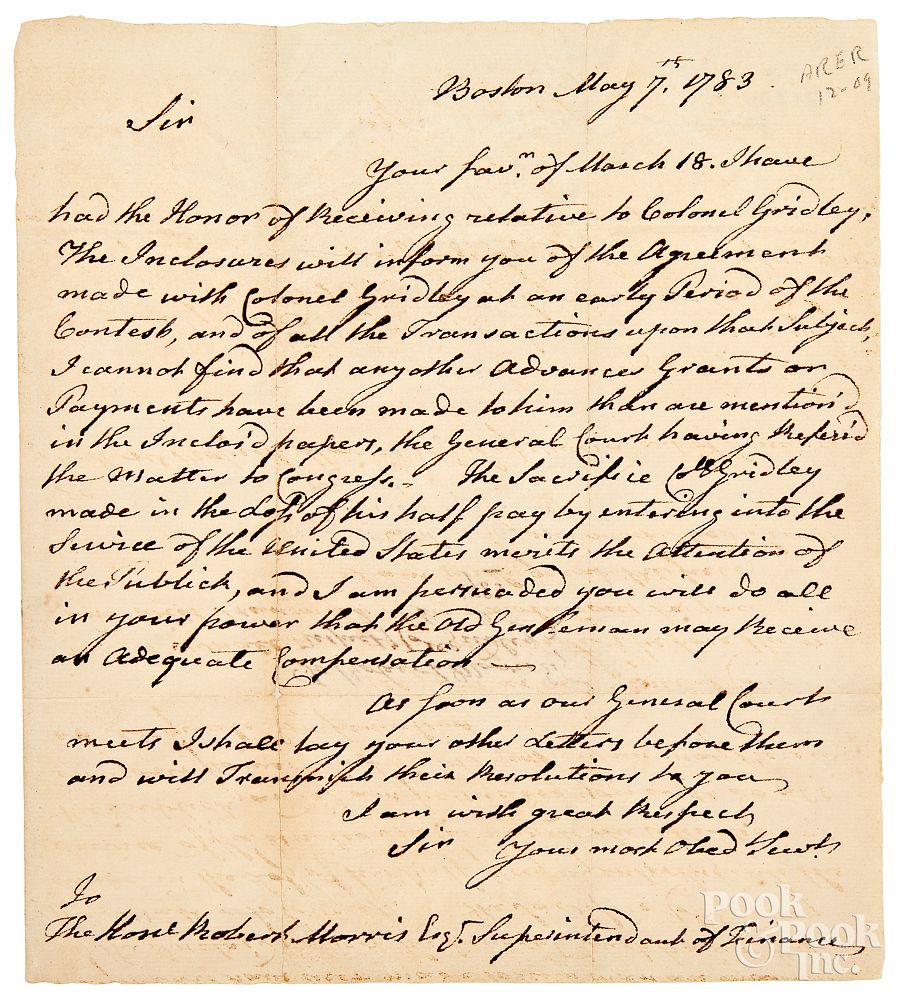 Boston May 7.th 1783.
ARER
12-09
Sir
Your favr. of March 18. I have
had the Honor of Receiving relative to Colonel Gridley,
The Inclosures will inform you of the Agreement
made with Colonel Gridley at an early Period of the
Contest, and of all the Transactions upon that Subject,
I cannot find that any other Advances Grants or
Payments have been made to him than are mention'd
in the Inclos'd papers, the General Court having Refer'd
the Matter to Congress. - The Sacrifice Colo Gridley
made in the Loss of his half pay by entering into the
Service of the United States merits the Attention of
the Publick, and I am persuaded you will do all
in your power that the Old Gentleman may Receive
an Adequate Compensation —
As soon as our General Court
meets I shall lay your other Letters before them
and will Transmitt their Resolutions to you
I am with great Respect
Sir Your most Obed.t Servt.
To
The Honl. Robert Morris Esqr. Superintendant of Finance
Pook
& Pook
Inc.